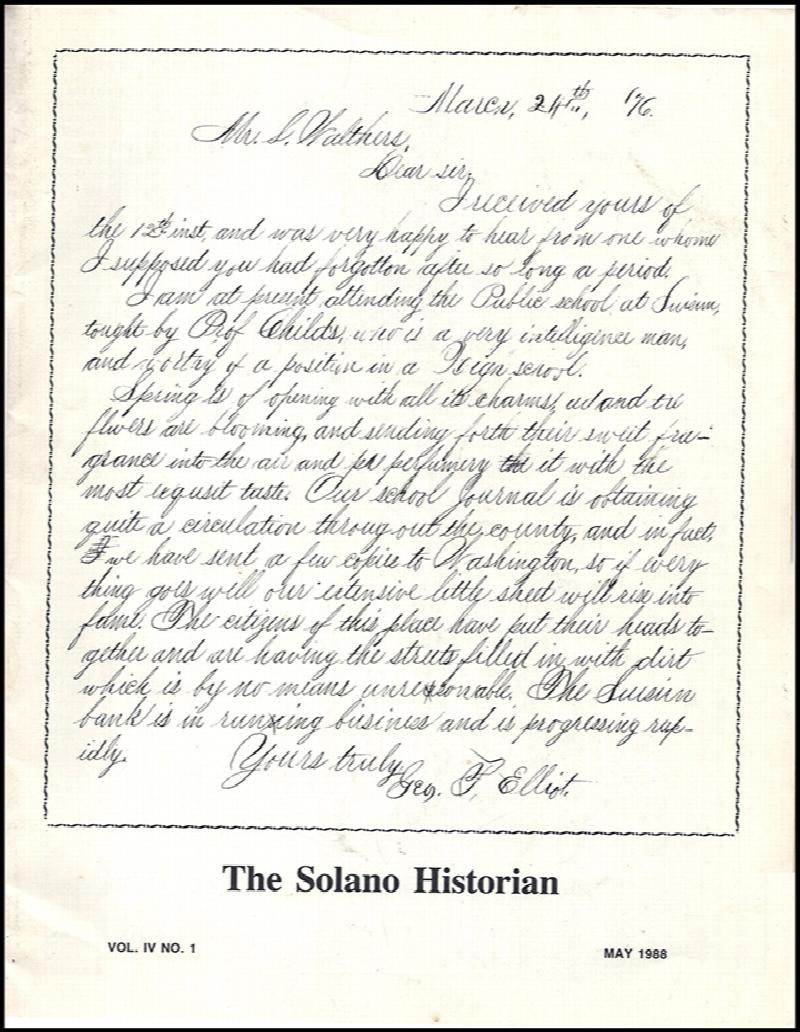 March, 24th, '76.
Mr. S. Walthers,
Dear sir,
I received yours of
the 12th inst, and was very happy to hear from one whome
I supposed you had forgotton after so long a period.
I am at present attending the Public school at Suisun,
tought by Prof Childs, who is a very intelligence man,
and wortry of a position in a High school.
Spring is of opening with all its charms, and
flwers are blooming, and sending forth their sweet fra-
grance into the air and perfumery it with the
most exqusit taste. Our school Journal is obtaining
quite a circulation throug out the county, and in fact,
we have sent a few copies to Washington, so if every
thing goes will our extensive little sheet will rise into
fame. The citizens of this place have put their heads to-
gether and are having the streets filled in with dirt
which is by no means unresonable. The Suisun
bank is in running business and is progressing rap-
idly.
Yours truly
Geo. F. Elliot.
The Solano Historian
VOL. IV NO. 1
MAY 1988